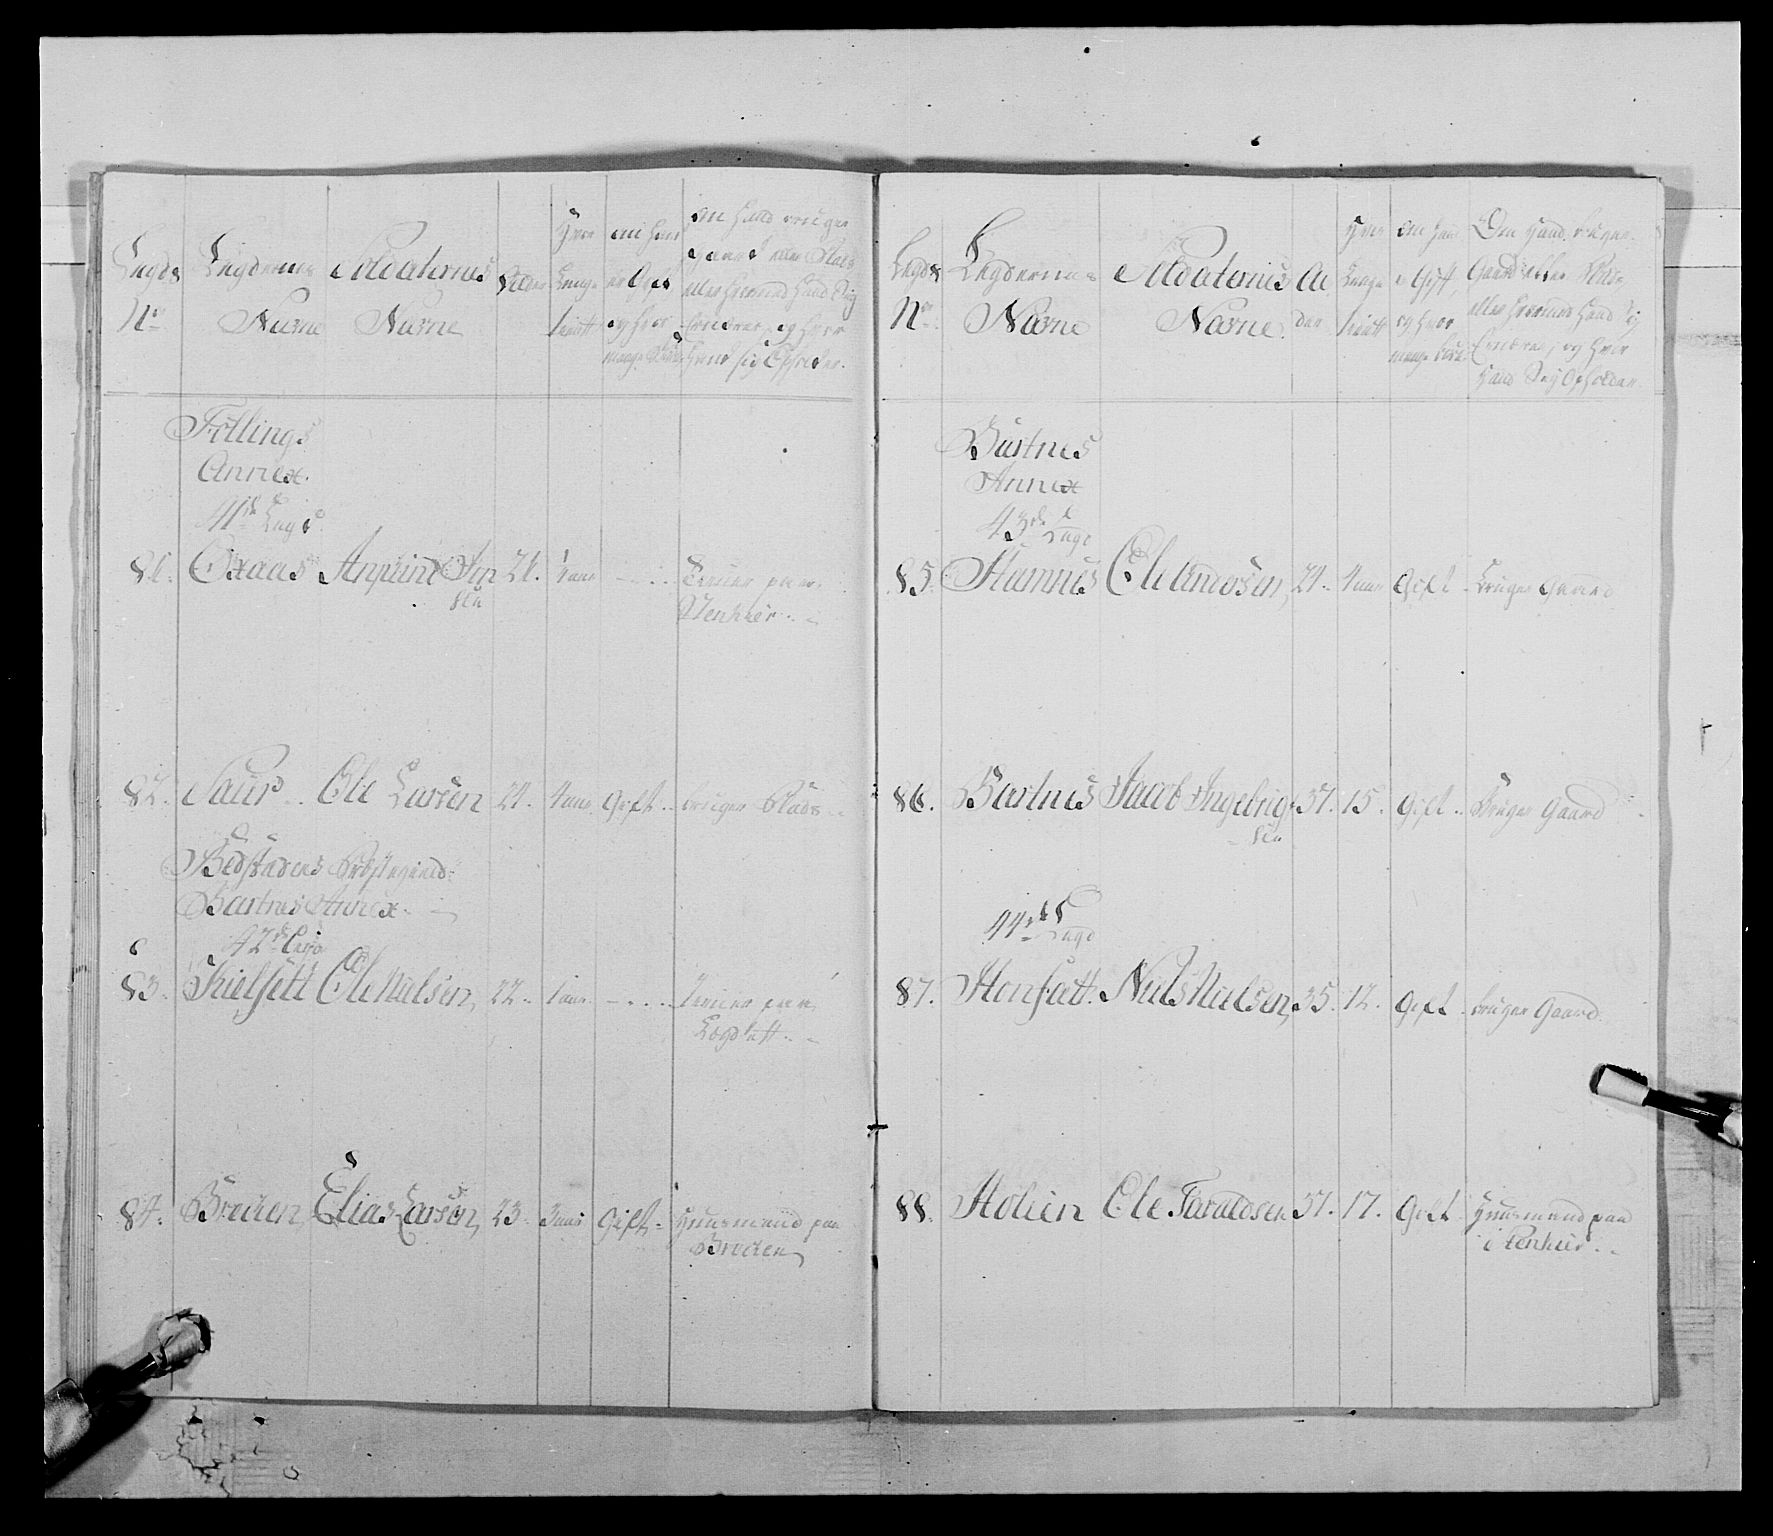 Legds
No
Legdernes
Navne
Soldaternes
Navne
Alder
Hvor
Længe
tient
om Hand
er Gift
og hvor
mange Børn
om Hand bruger
Gaard eller Plads
eller hvormed Hand Sig
Ernærer, og hvor
Hand sig Opholder.
Føllings
Annex.
41de Lægd
81. Oxaas Anfind Jon 21. 1 aar - . . . Tiener paa
sen Stenkier. . -
82. Saur . . Ole Larsen 24. 4 aar Gift . . bruger Plads . .
Bedstadens Præstegield:
Bartnes Annex. -
42de Legd
83. Kielsett Ole Nielsen, 22. 1 aar. - . . . . Tiener paa
84. Brecien Elias Larsen, 23. 3 aar Gift. - Huusmand paa
Brecien,
Legds
No
Legdernes
Navne
Soldaternes
Navne.
Al
der
Hvor
Længe
tient
om Hand
er Gift,
og hvor
mange børn
Om Hand bruger
Gaard eller Plads
eller hvormed Hand Sig
Ernærer, og hvor
Hand Sig Opholder.
Bartnes
Annex
43de Lægd
85. Hamnes Ole Andersen, 24. 4 aar Gift - bruger Gaard
86. Bartnes Jacob Ingebrigt 37. 15. Gift . . Bruger Gaard
sen
44de Lægd
87. Honsett. Niels Nielsen, 35. 12. Gift . bruger Gaard.
88. Holien Ole Taraldsen 37. 17. Gift Huusmand paa
Stenkier. . .